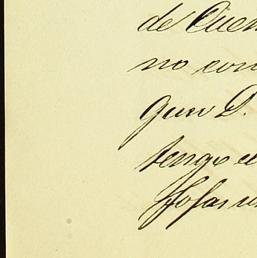 de Cuen
no con
que D.
tengo e